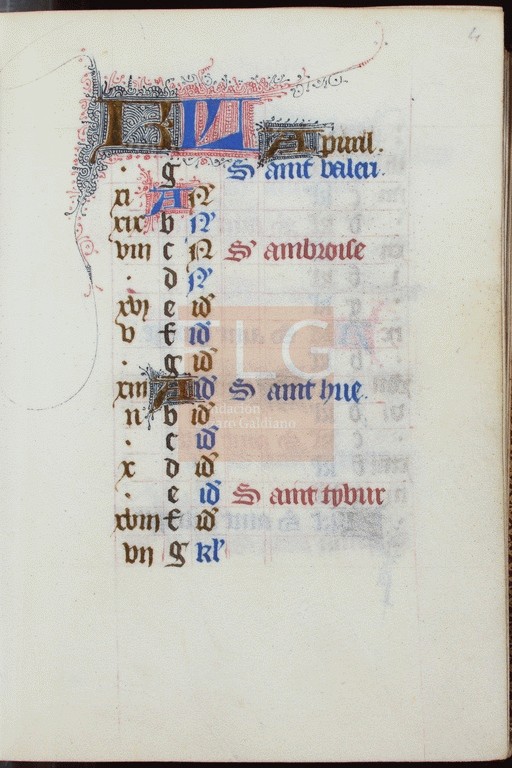 4
KL Apuril.
. g Saint valeri.
xi A N
xix b N
viii c N S' ambroise
. d N
xvj e id
v f id
. g id
xiii A id Saint hue.
ii b id
. c id
x d id
. e id Saint tybur
xviii f id
vii g kl'
FLG
Fundación
Lázaro Galdiano